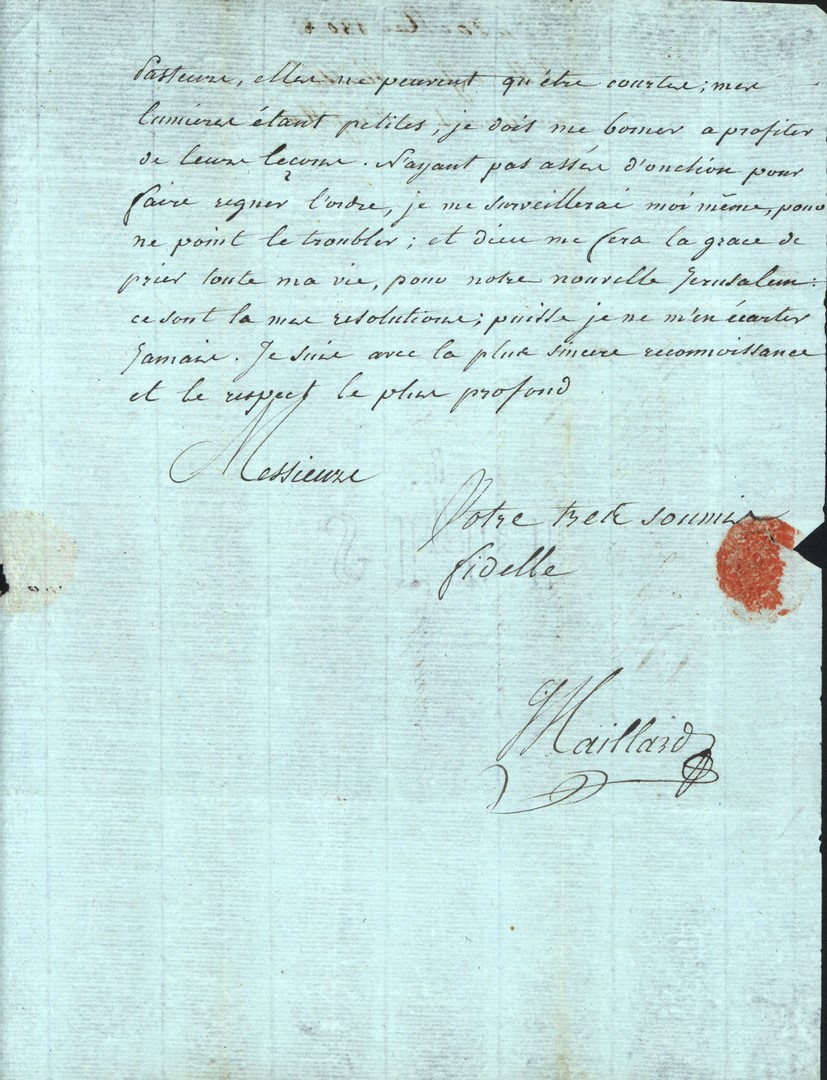 Pasteurs, elles ne peuvent qu'être courtes; mes
lumieres étant petites, je dois me borner a profiter
de leurs leçons. N'ayant pas assés d'onction pour
faire regner l'ordre, je me surveillerai moi même, pour
ne point le troubler; et dieu me fera la grace de
prier toute ma vie, pour notre nouvelle Jerusalem:
ce sont la mes resolutions; puisse je ne m'en écarter
Jamais. Je suis avec la plus sincere reconnoissance
et le respect le plus profond
Messieurs
Votre tres soumis
fidelle
Maillard